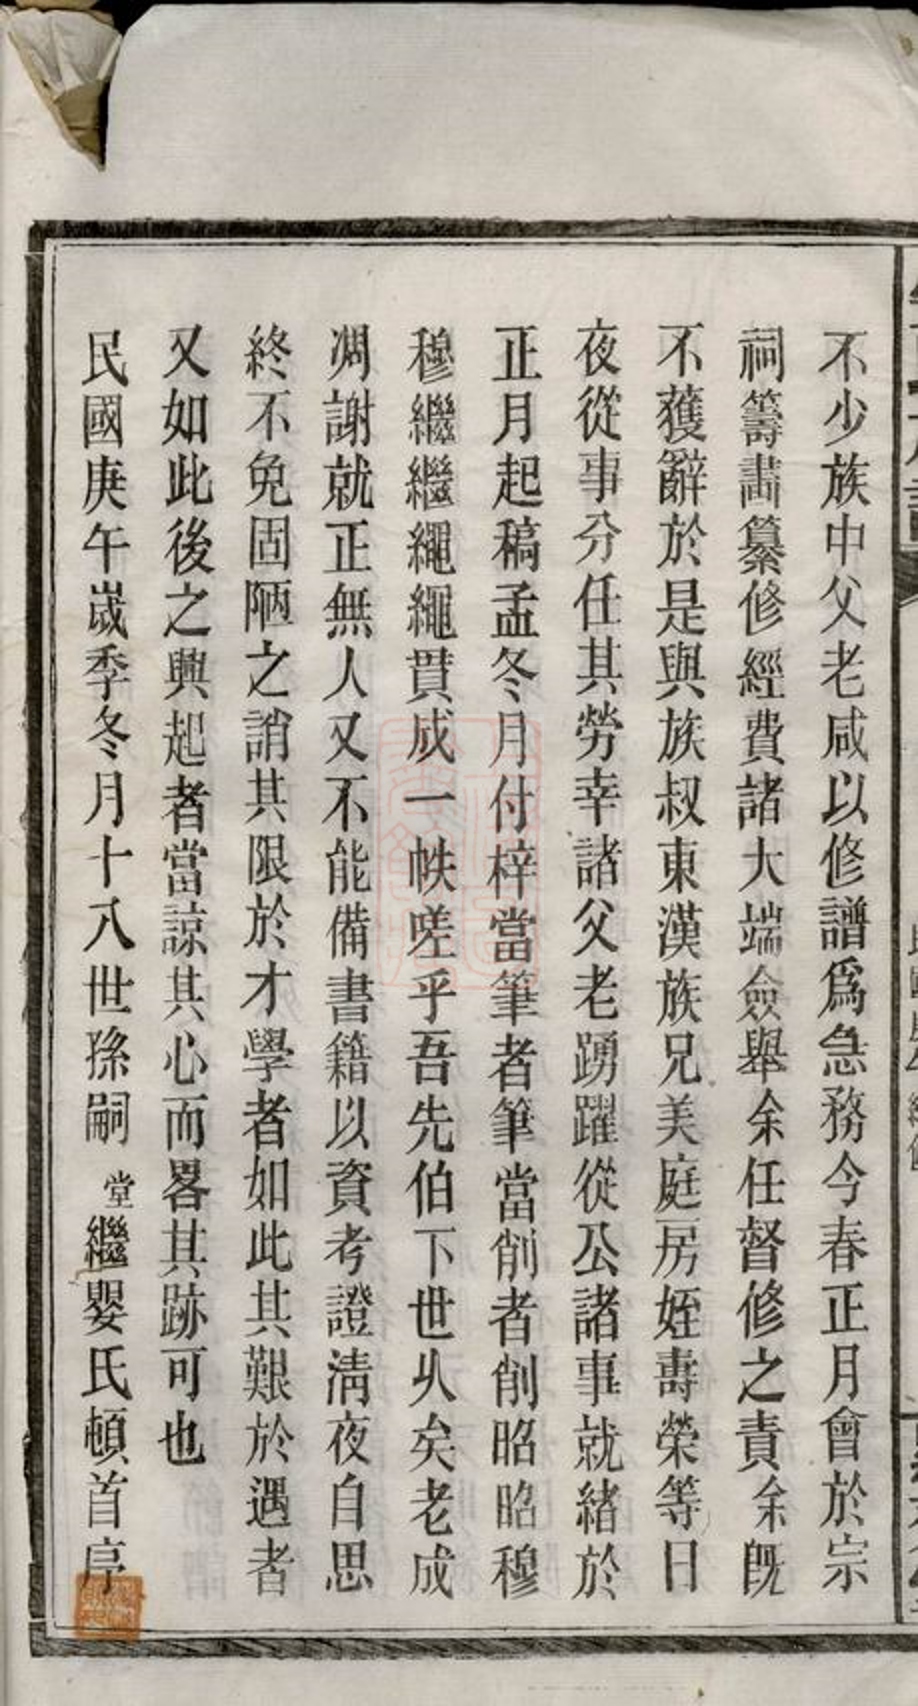 不少族中父老咸以修譜爲急務今春正月會於宗
祠籌畫纂修經費諸大端僉舉余任督修之責余旣
不獲辭於是與族叔東漢族兄美庭房姪壽榮等日
夜從事分任其勞幸諸父老踴躍從公諸事就緒於
正月起稿孟冬月付梓當筆者筆當削者削昭昭穆
穆繼繼繩繩貫成一帙嗟乎吾先伯下世乆矣老成
凋謝就正無人又不能備書籍以資考證淸夜自思
終不免固陋之誚其限於才學者如此其艱於遇者
又如此後之興起者當諒其心而畧其跡可也
民國庚午嵗季冬月十八世孫嗣堂繼嬰氏頓首序